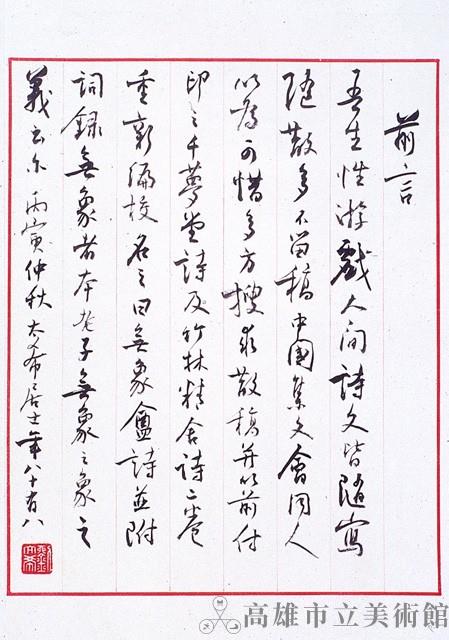 前言
吾生性游戲人间詩文皆随寫
随散多不留稿中國集文會同人
以為可惜多方搜求散稿并以前付
印之千夢堂詩及竹林精舍詩二卷
重新編校名之曰無象盦詩並附
詞録無象者本老子無象之象之
義云尔丙寅仲秋太希居士年八十有八
高雄市立美術館